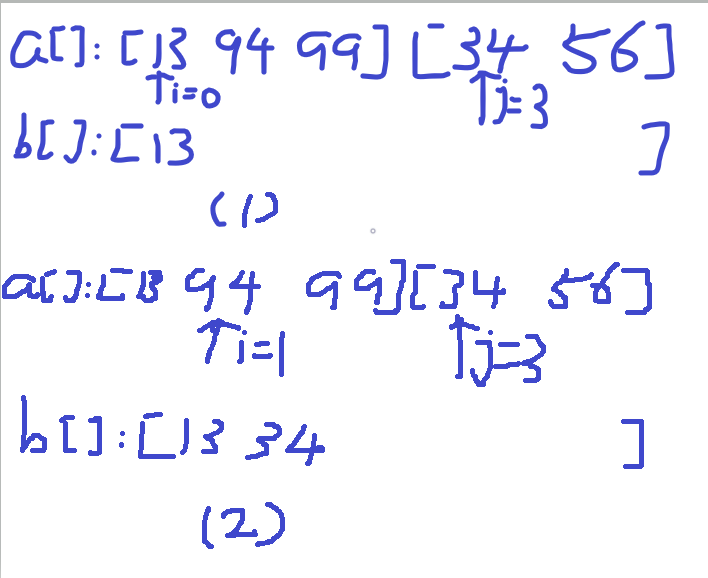 a[]: [13 94 99] [34 56]
↑i=0 ↑j=3
b[]: [13 ]
(1)
a[]: [13 94 99] [34 56]
↑i=1 ↑j=3
b[]: [13 34 ]
(2)